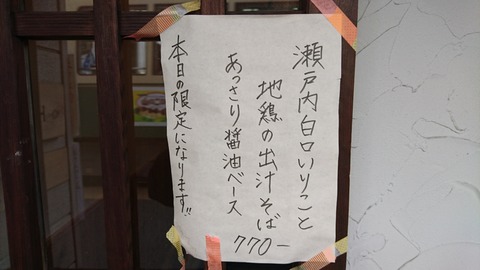 瀬戸内白口いりこと
地鶏の出汁そば
あっさり醤油ベース
770-
本日の限定になります!!